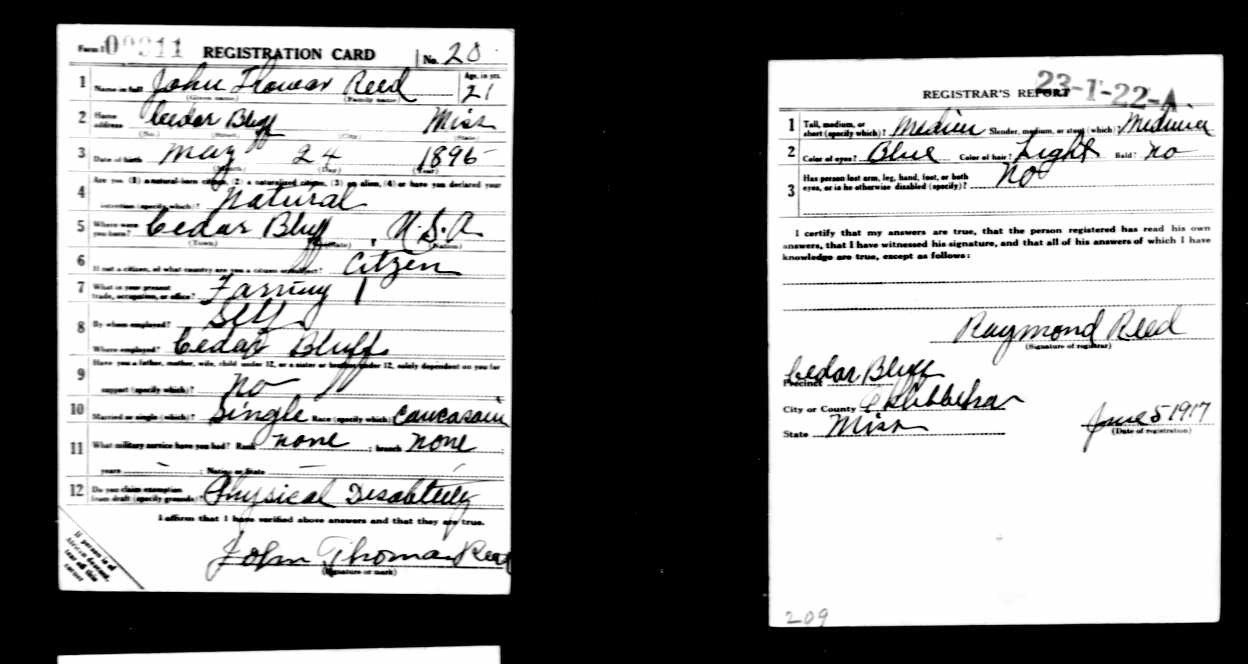 Form 1 00211 REGISTRATION CARD No. 20
1 Name in full John Thomas Reed Age, in yrs. 21
(Given name) (Family name)
2 Home address Cedar Bluff Miss
(No.) (Street) (City) (State)
3 Date of birth May 24 1896
(Month) (Day) (Year)
4 Are you (1) a natural-born citizen, (2) a naturalized citizen, (3) an alien, (4) or have you declared your
intention (specify which)? Natural
5 Where were you born? Cedar Bluff, U.S.A
(Town) (State) (Nation)
6 If not a citizen, of what country are you a citizen or subject? Citzen
7 What is your present trade, occupation, or office? Farming
8 By whom employed? Self
Where employed? Cedar Bluff
9 Have you a father, mother, wife, child under 12, or a sister or brother under 12, solely dependent on you for
support (specify which)? No
10 Married or single (which)? Single Race (specify which)? Caucasain
11 What military service have you had? Rank none ; branch none ;
years ; Nation or State
12 Do you claim exemption from draft (specify grounds)? Physical
I affirm that I have verified above answers and that they are true.
John Thomas Reed
(Signature or mark)
If person is of
African descent,
tear off this
corner
23-1-22-A.
REGISTRAR'S REPORT
1 Tall, medium, or short (specify which)? Medium Slender, medium, or stout (which)? Medium
2 Color of eyes? Blue Color of hair? Light Bald? No
3 Has person lost arm, leg, hand, foot, or both eyes, or is he otherwise disabled (specify)? No
I certify that my answers are true, that the person registered has read his own
answers, that I have witnessed his signature, and that all of his answers of which I have
knowledge are true, except as follows:
Raymond Reed
(Signature of registrar)
Precinct Cedar Bluff
City or County
State Miss
June 5 1917
(Date of registration)
209